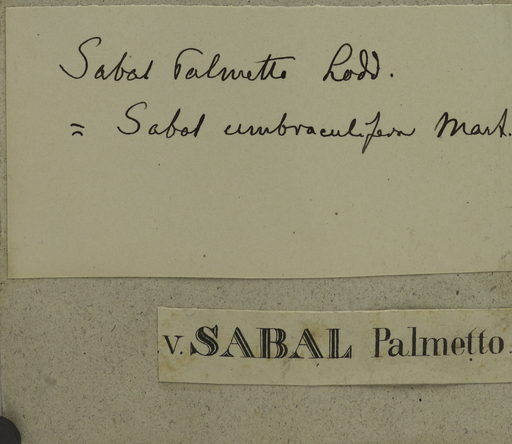 Sabal Palmetto Lodd.
= Sabal umbraculifera Mart.
V. SABAL Palmetto.